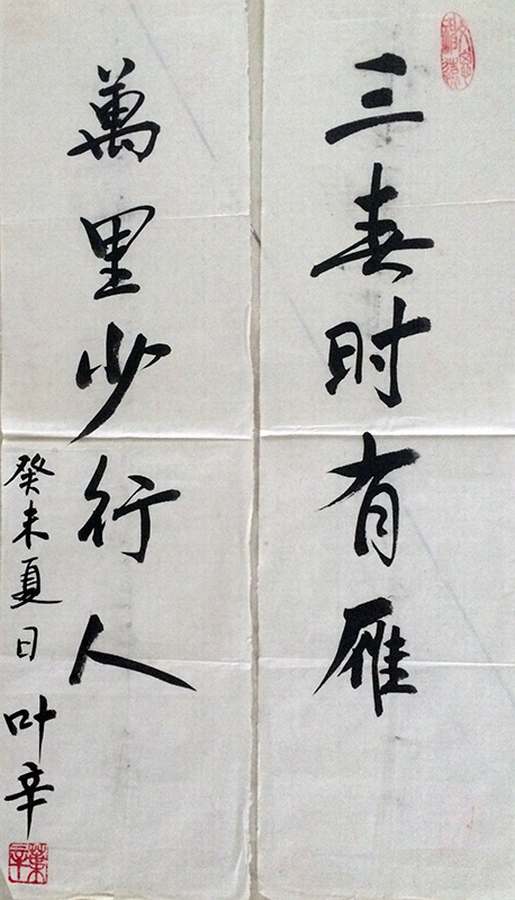 三春时有雁
萬里少行人
癸未夏日
叶辛
葉辛